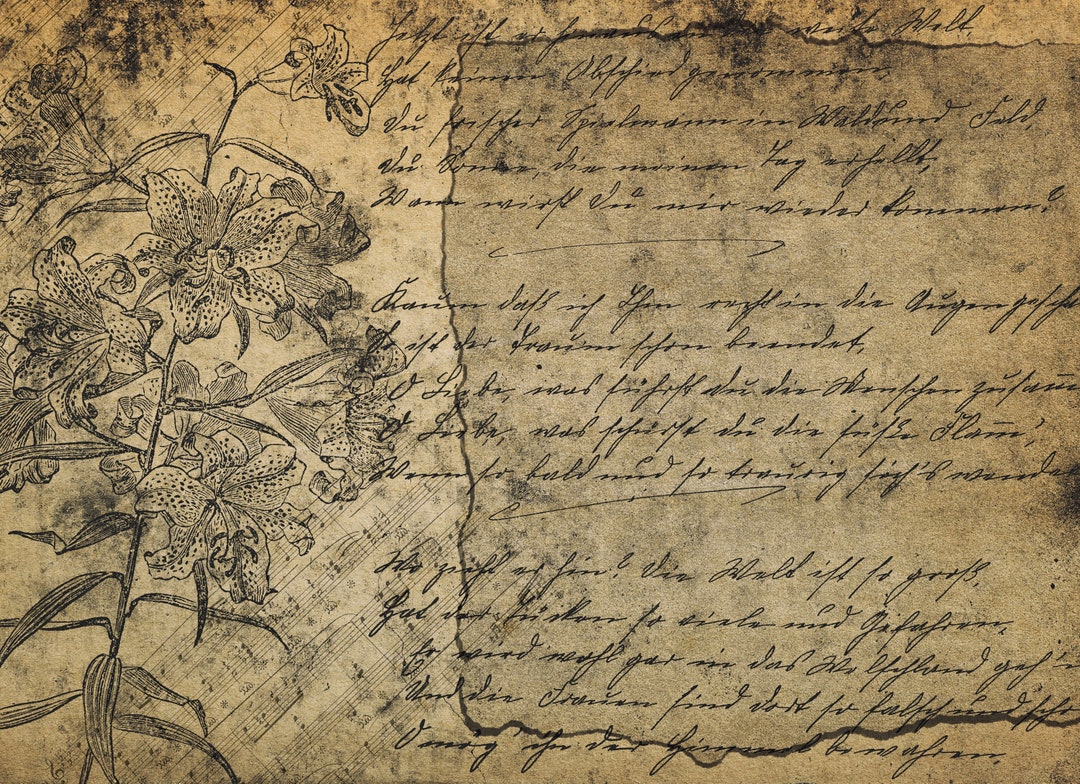 Jetzt ist er hinaus in die weite Welt,
Hat keinen Abschied genommen,
Du frischer Spielmann in Wald und Feld,
Du Sonne, die meinen Tag erhellt,
Wann wirst Du mir wieder kommen?
Kaum daß ich Ihm recht in die Augen gescha
So ist der Traum schon beendet,
O Liebe, was führst du die Menschen zusam
O Liebe, was schürst du die süße Flam̅',
Wenn so bald und so traurig sich's wende
Wo zieht er hin? die Welt ist so groß,
Hat der Tücken so viele und Gefahren,
Er wird wohl gar in das Welschland geh'n
Und die Frauen sind dort so falsch und schö
O mög' ihn der Himmel bewahren.